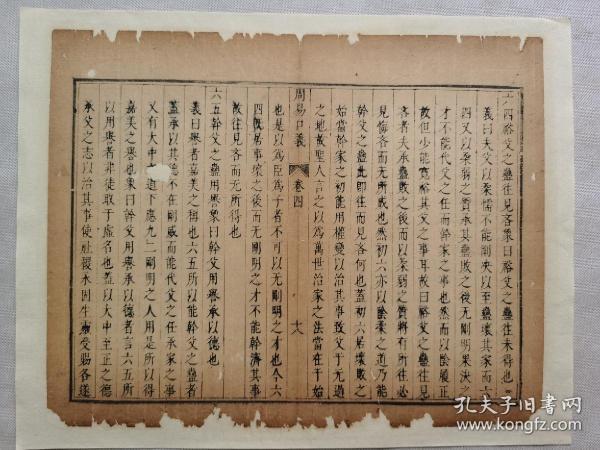 六四裕父之蠱往見吝象曰裕父之蠱往未得也
義曰夫父以柔懦不能剛決以至蠱壞其家而六
四又以柔弱之質承其蠱敗之後无剛明果決之
才不能代父之任而幹家之事也然而以陰履正
故但少能寬裕其父之事耳故曰裕父之蠱往見
吝者夫承蠱敗之後而以柔弱之質料有所往必
見悔吝而无所成也然初六亦以陰柔之道乃能
幹父之蠱此即往而見吝何也蓋初六始壞敗之
始當幹家之初能用權變以治其事致父于无過
之地故聖人言之以為萬世治家之法當在于始
周易口義 卷四 十八
也是以為臣為子者不可以无剛明之才也今六
四既居事壞之後而无剛明之才不能幹濟其事
故往見吝而无所得也
六五幹父之蠱用譽象曰幹父用譽承以德也
義曰譽者嘉美之稱也六五所以幹父之蠱者
蓋承以其德不在剛威而能代父之任承家之事
又有大中之道下應九二剛明之人用是所以得
嘉美之譽也象曰幹父用譽承以德者言六五所
以用譽者非徒取于虛名也蓋以大中至正之德
承父之志以治其事使社稷永固生靈受賜各遂
孔夫子旧书网
www.kongfz.com